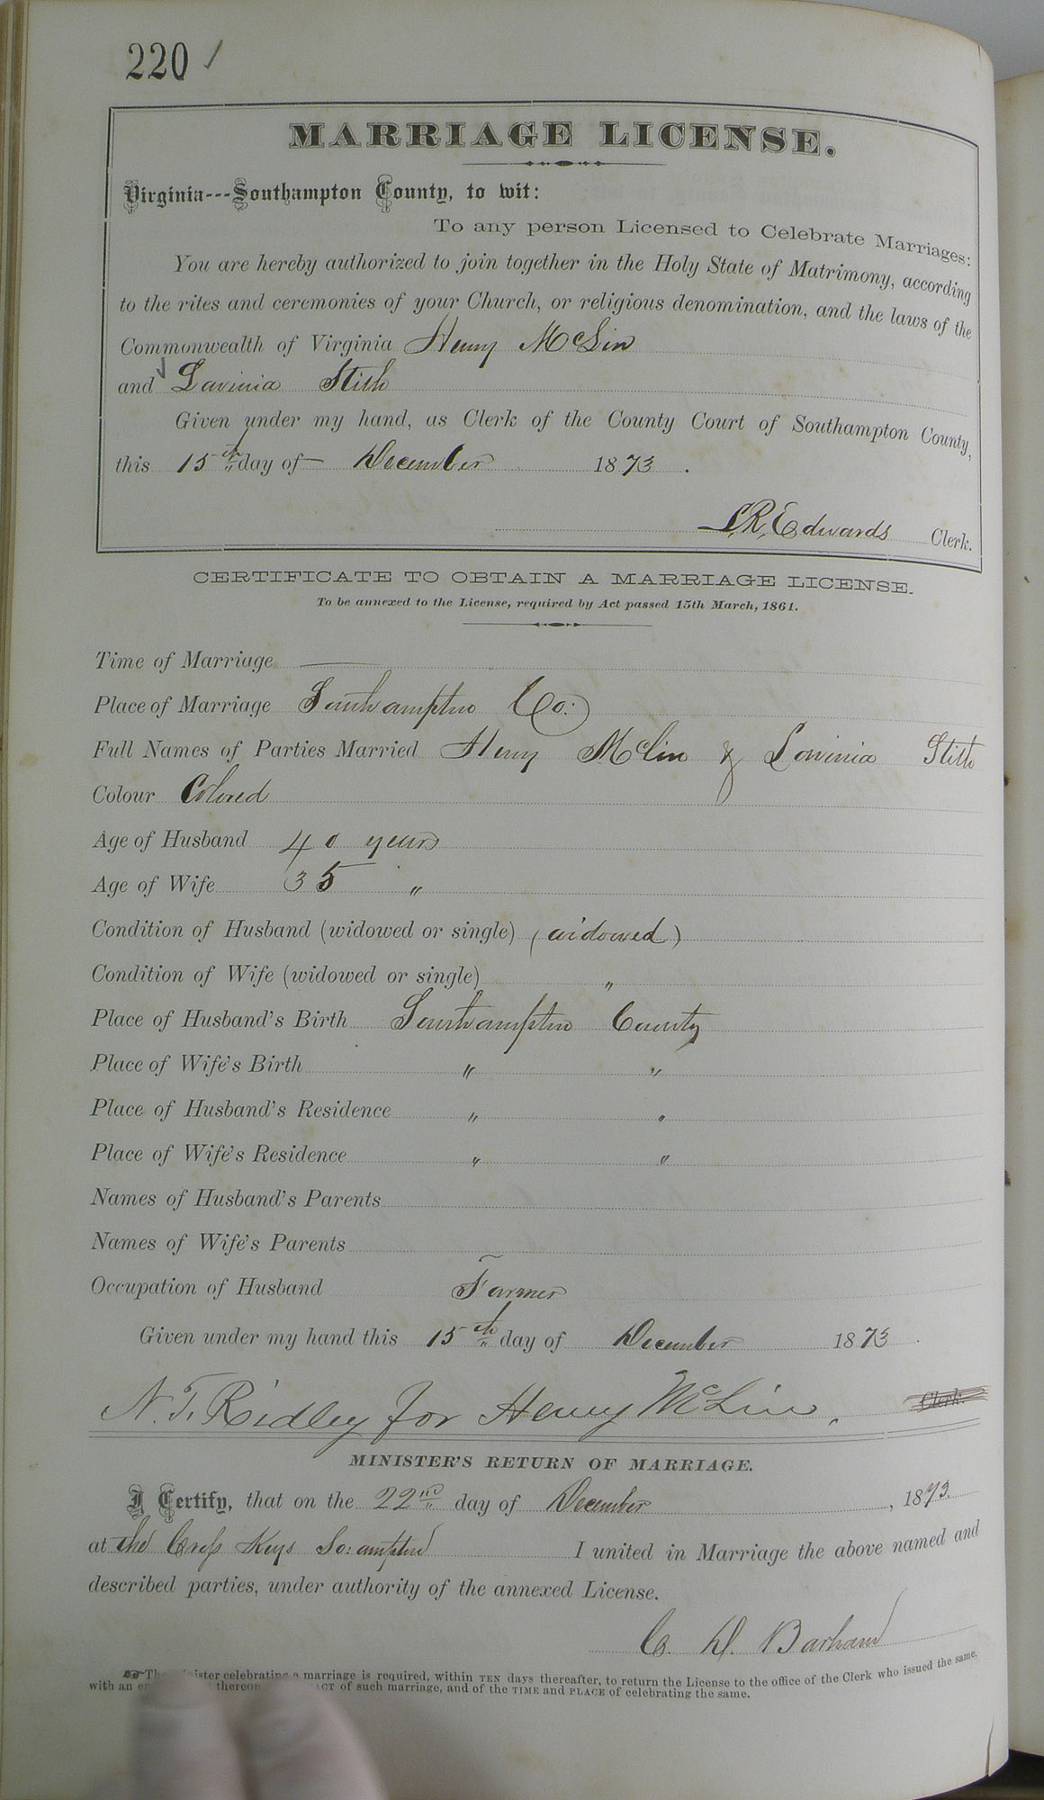 220 /
MARRIAGE LICENSE.
Virginia---Southampton County, to wit:
To any person Licensed to Celebrate Marriages:
You are hereby authorized to join together in the Holy State of Matrimony, according
to the rites and ceremonies of your Church, or religious denomination, and the laws of the
Commonwealth of Virginia Henry McLin
and Lavinia Stith
Given under my hand, as Clerk of the County Court of Southampton County,
this 15th day of — December 1873.
L.R. Edwards Clerk.
CERTIFICATE TO OBTAIN A MARRIAGE LICENSE.
To be annexed to the License, required by Act passed 15th March, 1861.
Time of Marriage ——
Place of Marriage Southampton Co:
Full Names of Parties Married Henry McLin & Lavinia Stith
Colour Colored
Age of Husband 40 years
Age of Wife 35 "
Condition of Husband (widowed or single) (widowed)
Condition of Wife (widowed or single) "
Place of Husband's Birth Southampton County
Place of Wife's Birth " "
Place of Husband's Residence " "
Place of Wife's Residence " "
Names of Husband's Parents
Names of Wife's Parents
Occupation of Husband Farmer
Given under my hand this 15th day of December 1873.
N. T. Ridley for Henry McLin. Clerk.
MINISTER'S RETURN OF MARRIAGE.
I Certify, that on the 22nd day of December, 1873.
at the Cross Keys So:ampton I united in Marriage the above named and
described parties, under authority of the annexed License.
C. D. Barham
The Minister celebrating a marriage is required, within TEN days thereafter, to return the License to the office of the Clerk who issued the same,
with an thereon of such marriage, and of the TIME and PLACE of celebrating the same.